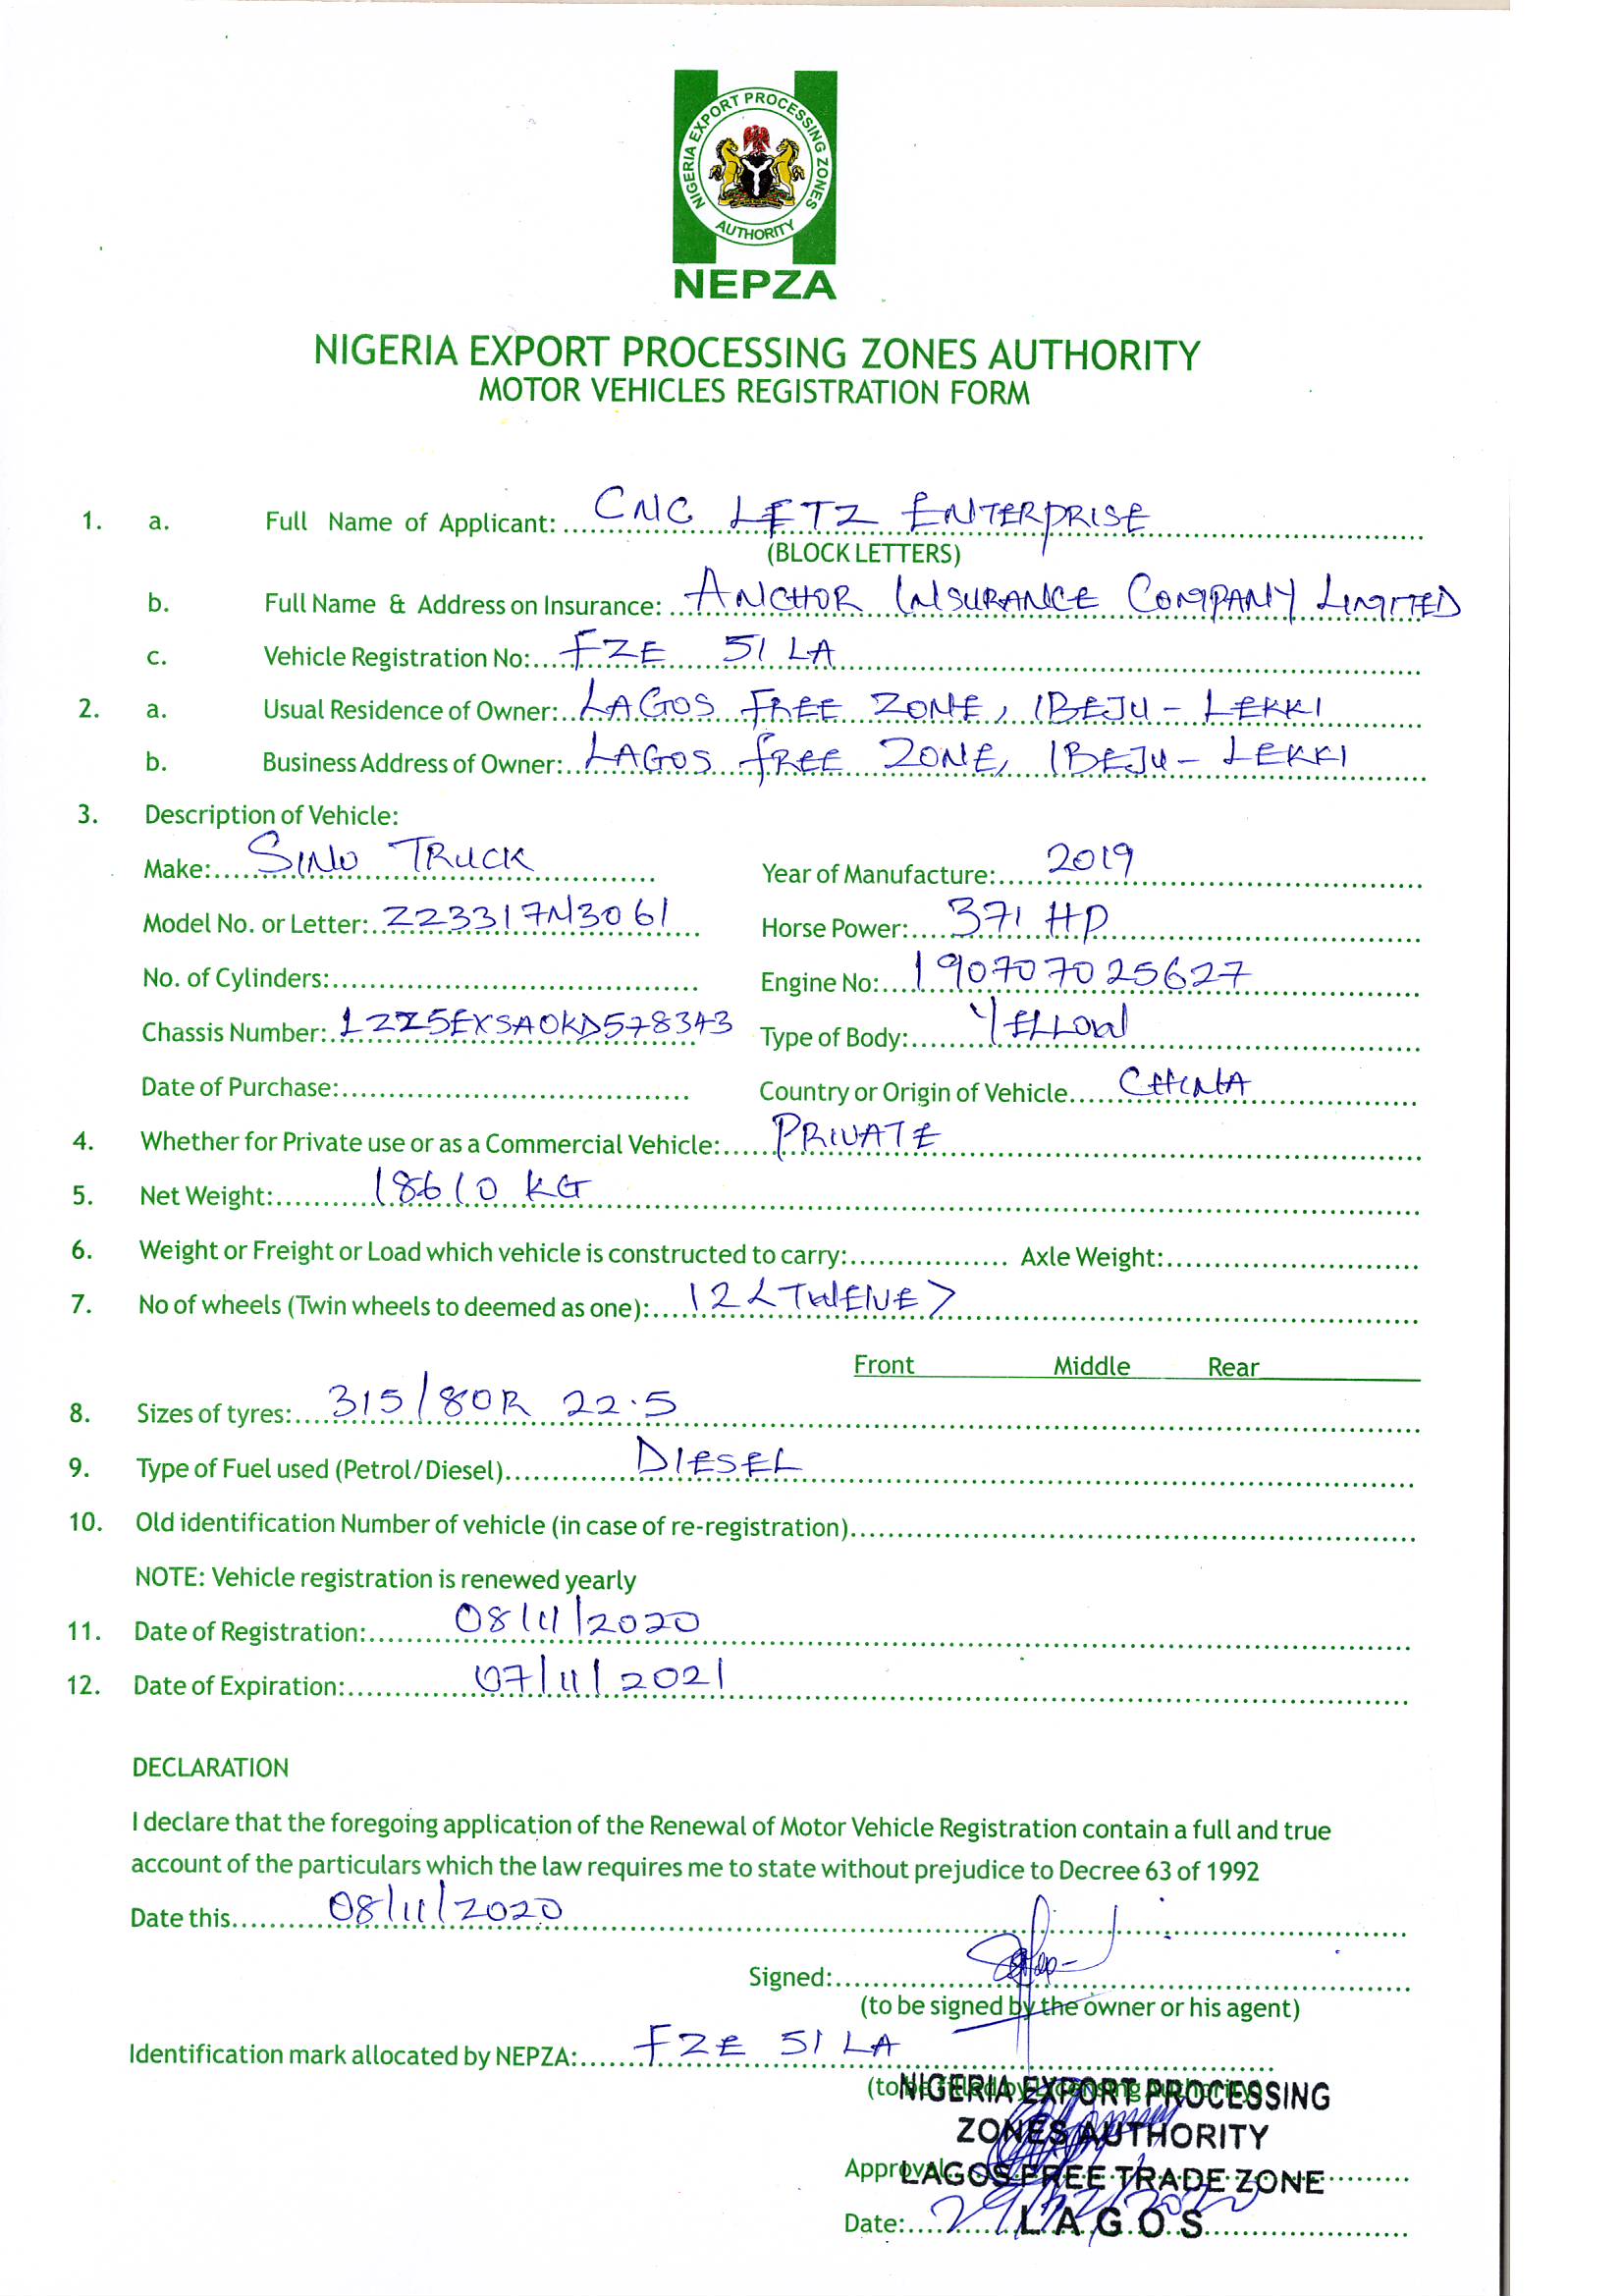 NIGERIA EXPORT PROCESSING ZONES
AUTHORITY
NEPZA
NIGERIA EXPORT PROCESSING ZONES AUTHORITY
MOTOR VEHICLES REGISTRATION FORM
1. a. Full Name of Applicant: CNC LETZ ENTERPRISE
(BLOCK LETTERS)
b. Full Name & Address on Insurance: ANCHOR INSURANCE COMPANY LIMITED
c. Vehicle Registration No: FZE 51 LA
2. a. Usual Residence of Owner: LAGOS FREE ZONE, IBEJU - LEKKI
b. Business Address of Owner: LAGOS FREE ZONE, IBEJU - LEKKI
3. Description of Vehicle:
Make: SINO TRUCK Year of Manufacture: 2019
Model No. or Letter: ZZ3317N3061 Horse Power: 371 HP
No. of Cylinders: Engine No: 190707025627
Chassis Number: LZZ5EXSA0KD578343 Type of Body: YELLOW
Date of Purchase: Country or Origin of Vehicle CHINA
4. Whether for Private use or as a Commercial Vehicle: PRIVATE
5. Net Weight: 18610 KG
6. Weight or Freight or Load which vehicle is constructed to carry: Axle Weight:
7. No of wheels (Twin wheels to deemed as one): 12 <TWELVE>
Front Middle Rear
8. Sizes of tyres: 315/80R 22.5
9. Type of Fuel used (Petrol/Diesel) DIESEL
10. Old identification Number of vehicle (in case of re-registration)
NOTE: Vehicle registration is renewed yearly
11. Date of Registration: 08/11/2020
12. Date of Expiration: 07/11/2021
DECLARATION
I declare that the foregoing application of the Renewal of Motor Vehicle Registration contain a full and true
account of the particulars which the law requires me to state without prejudice to Decree 63 of 1992
Date this 08/11/2020
Signed:
(to be signed by the owner or his agent)
Identification mark allocated by NEPZA: FZE 51 LA
(to be filled by Licensing Authority)
NIGERIA EXPORT PROCESSING
ZONES AUTHORITY
Approval:
LAGOS FREE TRADE ZONE
Date: 29/12/2020
LAGOS